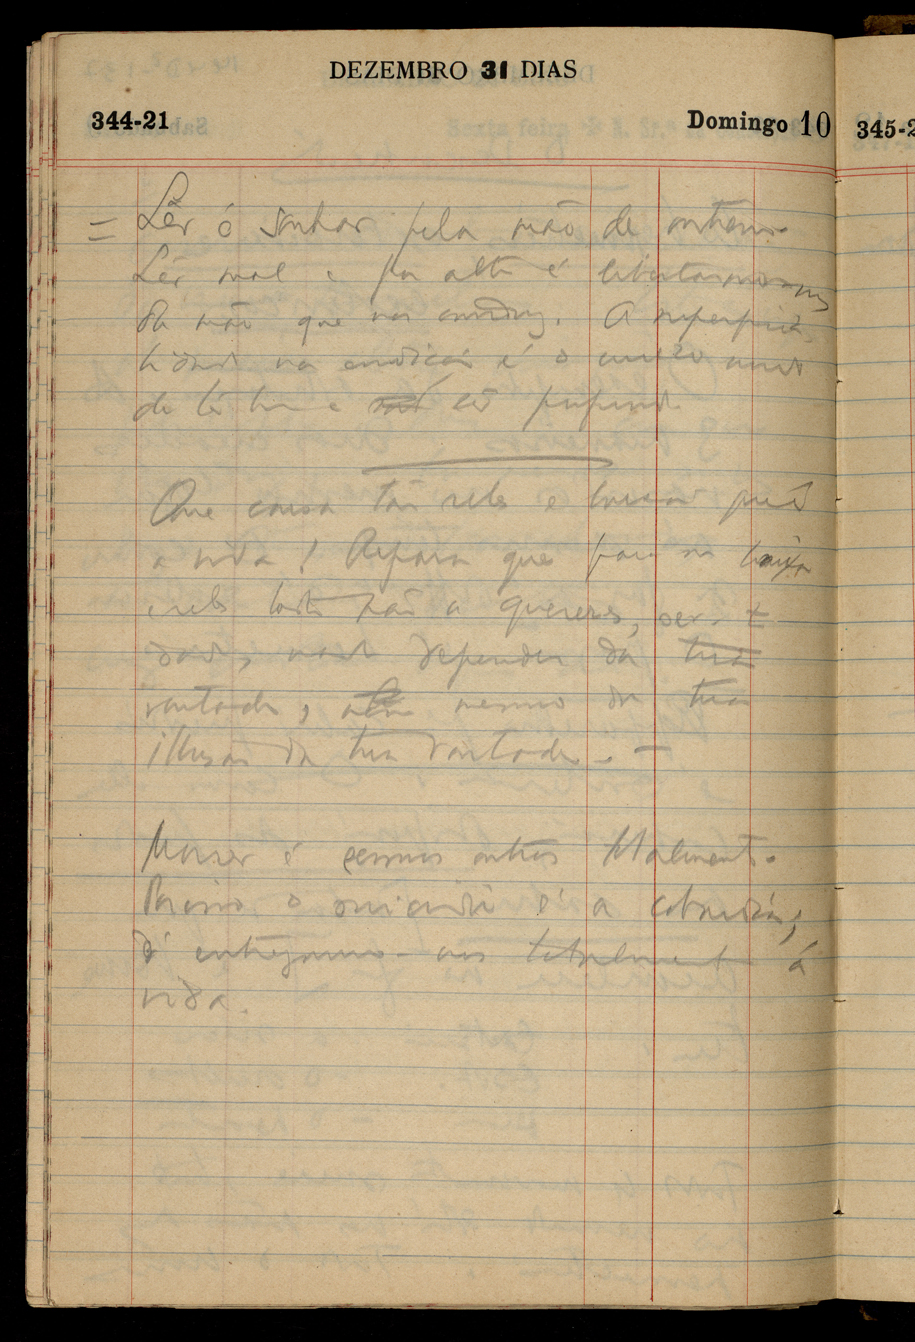 DEZEMBRO 31 DIAS
344-21
Domingo 10
345-2
= Lêr é sonhar pela mão de outrem.
Lêr mal e por alto é libertarmo-nos
da mão que nos conduz. A superficia-
lidade na erudição é o melhor modo
de lêr bem e ser profundo.
Que cousa tão reles e baixa que é
a vida! Repara que para ser baixa
e reles basta não a quereres, ser-te
dada, nada depender da tua
vontade, nem mesmo da tua
illusão da tua vontade. —
Morrer é sermos outros totalmente.
Porisso o suicidio é a cobardia;
é entregarmo-nos totalmente á
vida.